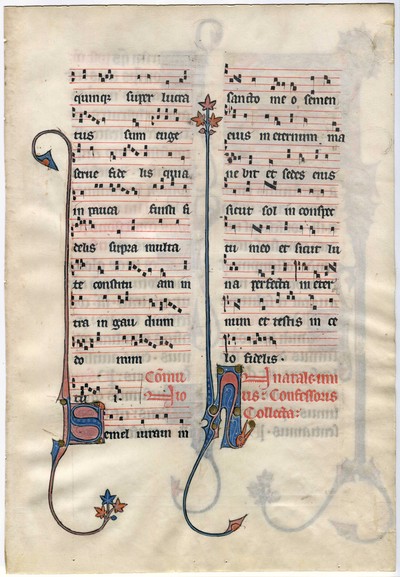 quinq3 super lucra
tus sum euge
serue fide lis quia
in pauca fuisti fi
delis supra multa
te constitu am in
tra in gau dium
do mini
Cōmu
nio
Semel iuraui in
sancto me o semen
eius in eternum ma
ne bit et sedes eius
sicut sol in conspe
tu meo et sicut lu
na perfecta in eter
num et testis in ce
lo fidelis.
In natale uni
us Confessoris
Collecta: